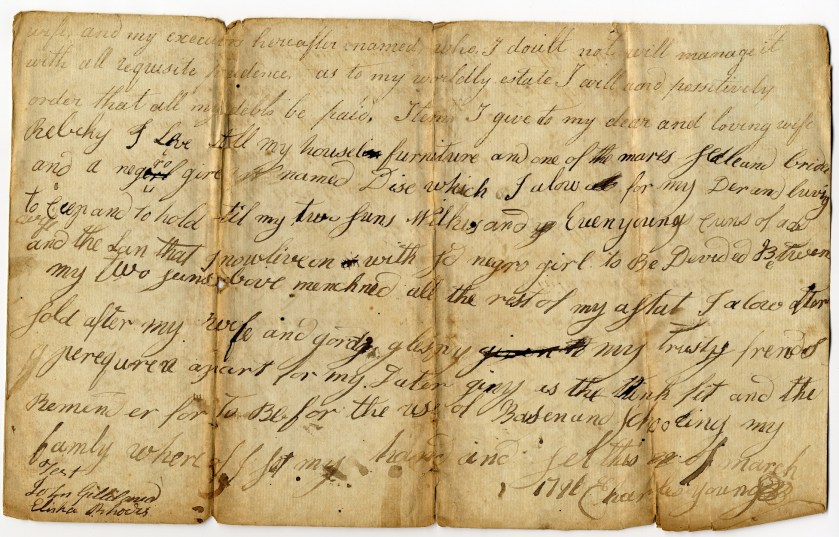 wife and my executors hereafter named, who, I doubt not will manage it
with all requisite prudence. as to my worldly estate I will and possitively
order that all my debts be paid. Item I give to my dear and loving wife
Rebeky I Leve all my house furniture and one of the mares and bridle
and a negro girl named Dise which I alow for my Der and luving
wife
to Ceep and to hold til my two suns Wilkis and Euen young cums of age
and the Lan that I now live on with sd negro girl to Be Devided Betwen
my two suns above menchned all the rest of my astat I alow after
sold after my wife and my Trusty frends
apart for my as the think fit and the
Remem er for To Be for the use of and Schooling my
famly where of I set my hand and sel this of march
1786 Charles young
Test
John Gilliland
Elisha Rhodes